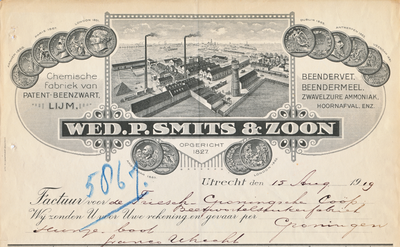 Chemische
Fabriek van
PATENT-BEENZWART.
LIJM.
BEENDERVET.
BEENDERMEEL.
ZWAVELZURE AMMONIAK.
HOORNAFVAL. ENZ.
WED. P. SMITS & ZOON
OPGERICHT
1827
5867.
Utrecht den 15 Aug 1919
Factuur voor de Friesch-Groningsche Coöp.
Beetwortelsuikerfabriek
Wij zenden U voor Uwe rekening en gevaar per Groningen
boot
franco Utrecht